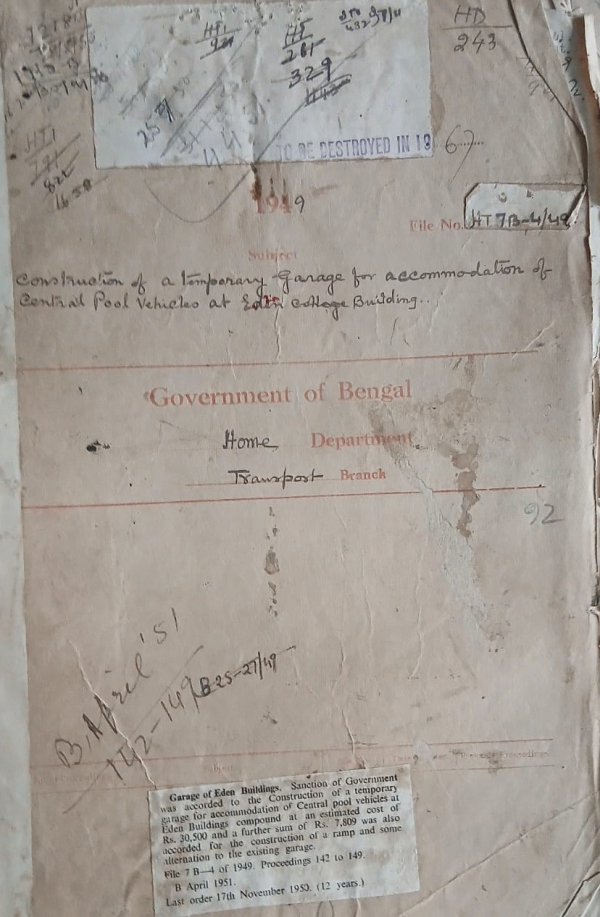 HD
243
HT
261
329
TO BE DESTROYED IN 19 67
1949
File No. HT 7B-4/49
Subject
Construction of a temporary Garage for accommodation of
Central Pool Vehicles at Eden College Building..
Government of Bengal
Home Department
Transport Branch
92
B. April '51
142-149
B 25-27/49
Garage of Eden Buildings. Sanction of Government
was accorded to the Construction of a temporary
garage for accommodation of Central pool vehicles at
Eden Buildings compound at an estimated cost of
Rs. 30,500 and a further sum of Rs. 7,809 was also
accorded for the construction of a ramp and some
alternation to the existing garage.
File 7 B—4 of 1949. Proceedings 142 to 149.
B April 1951.
Last order 17th November 1950. (12 years.)